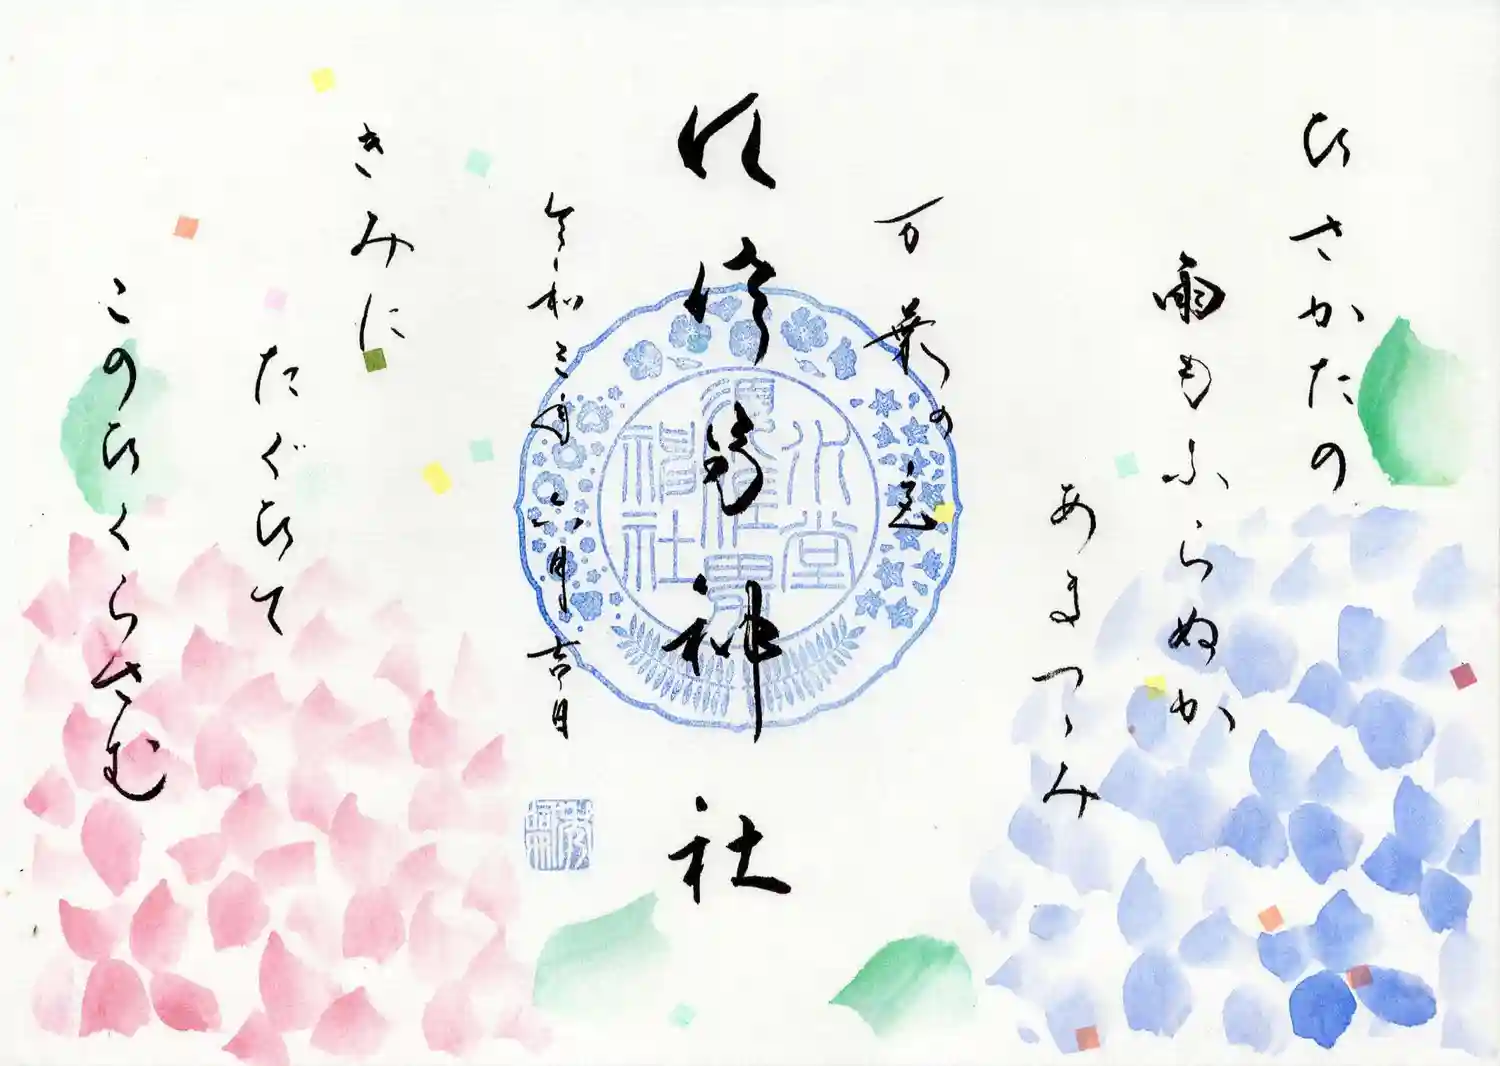 ひさかたの
雨もふらぬか
あまつゝみ
万葉の
神社
令和三年六月吉日
きみに
たぐひて
このひくらさむ
神社